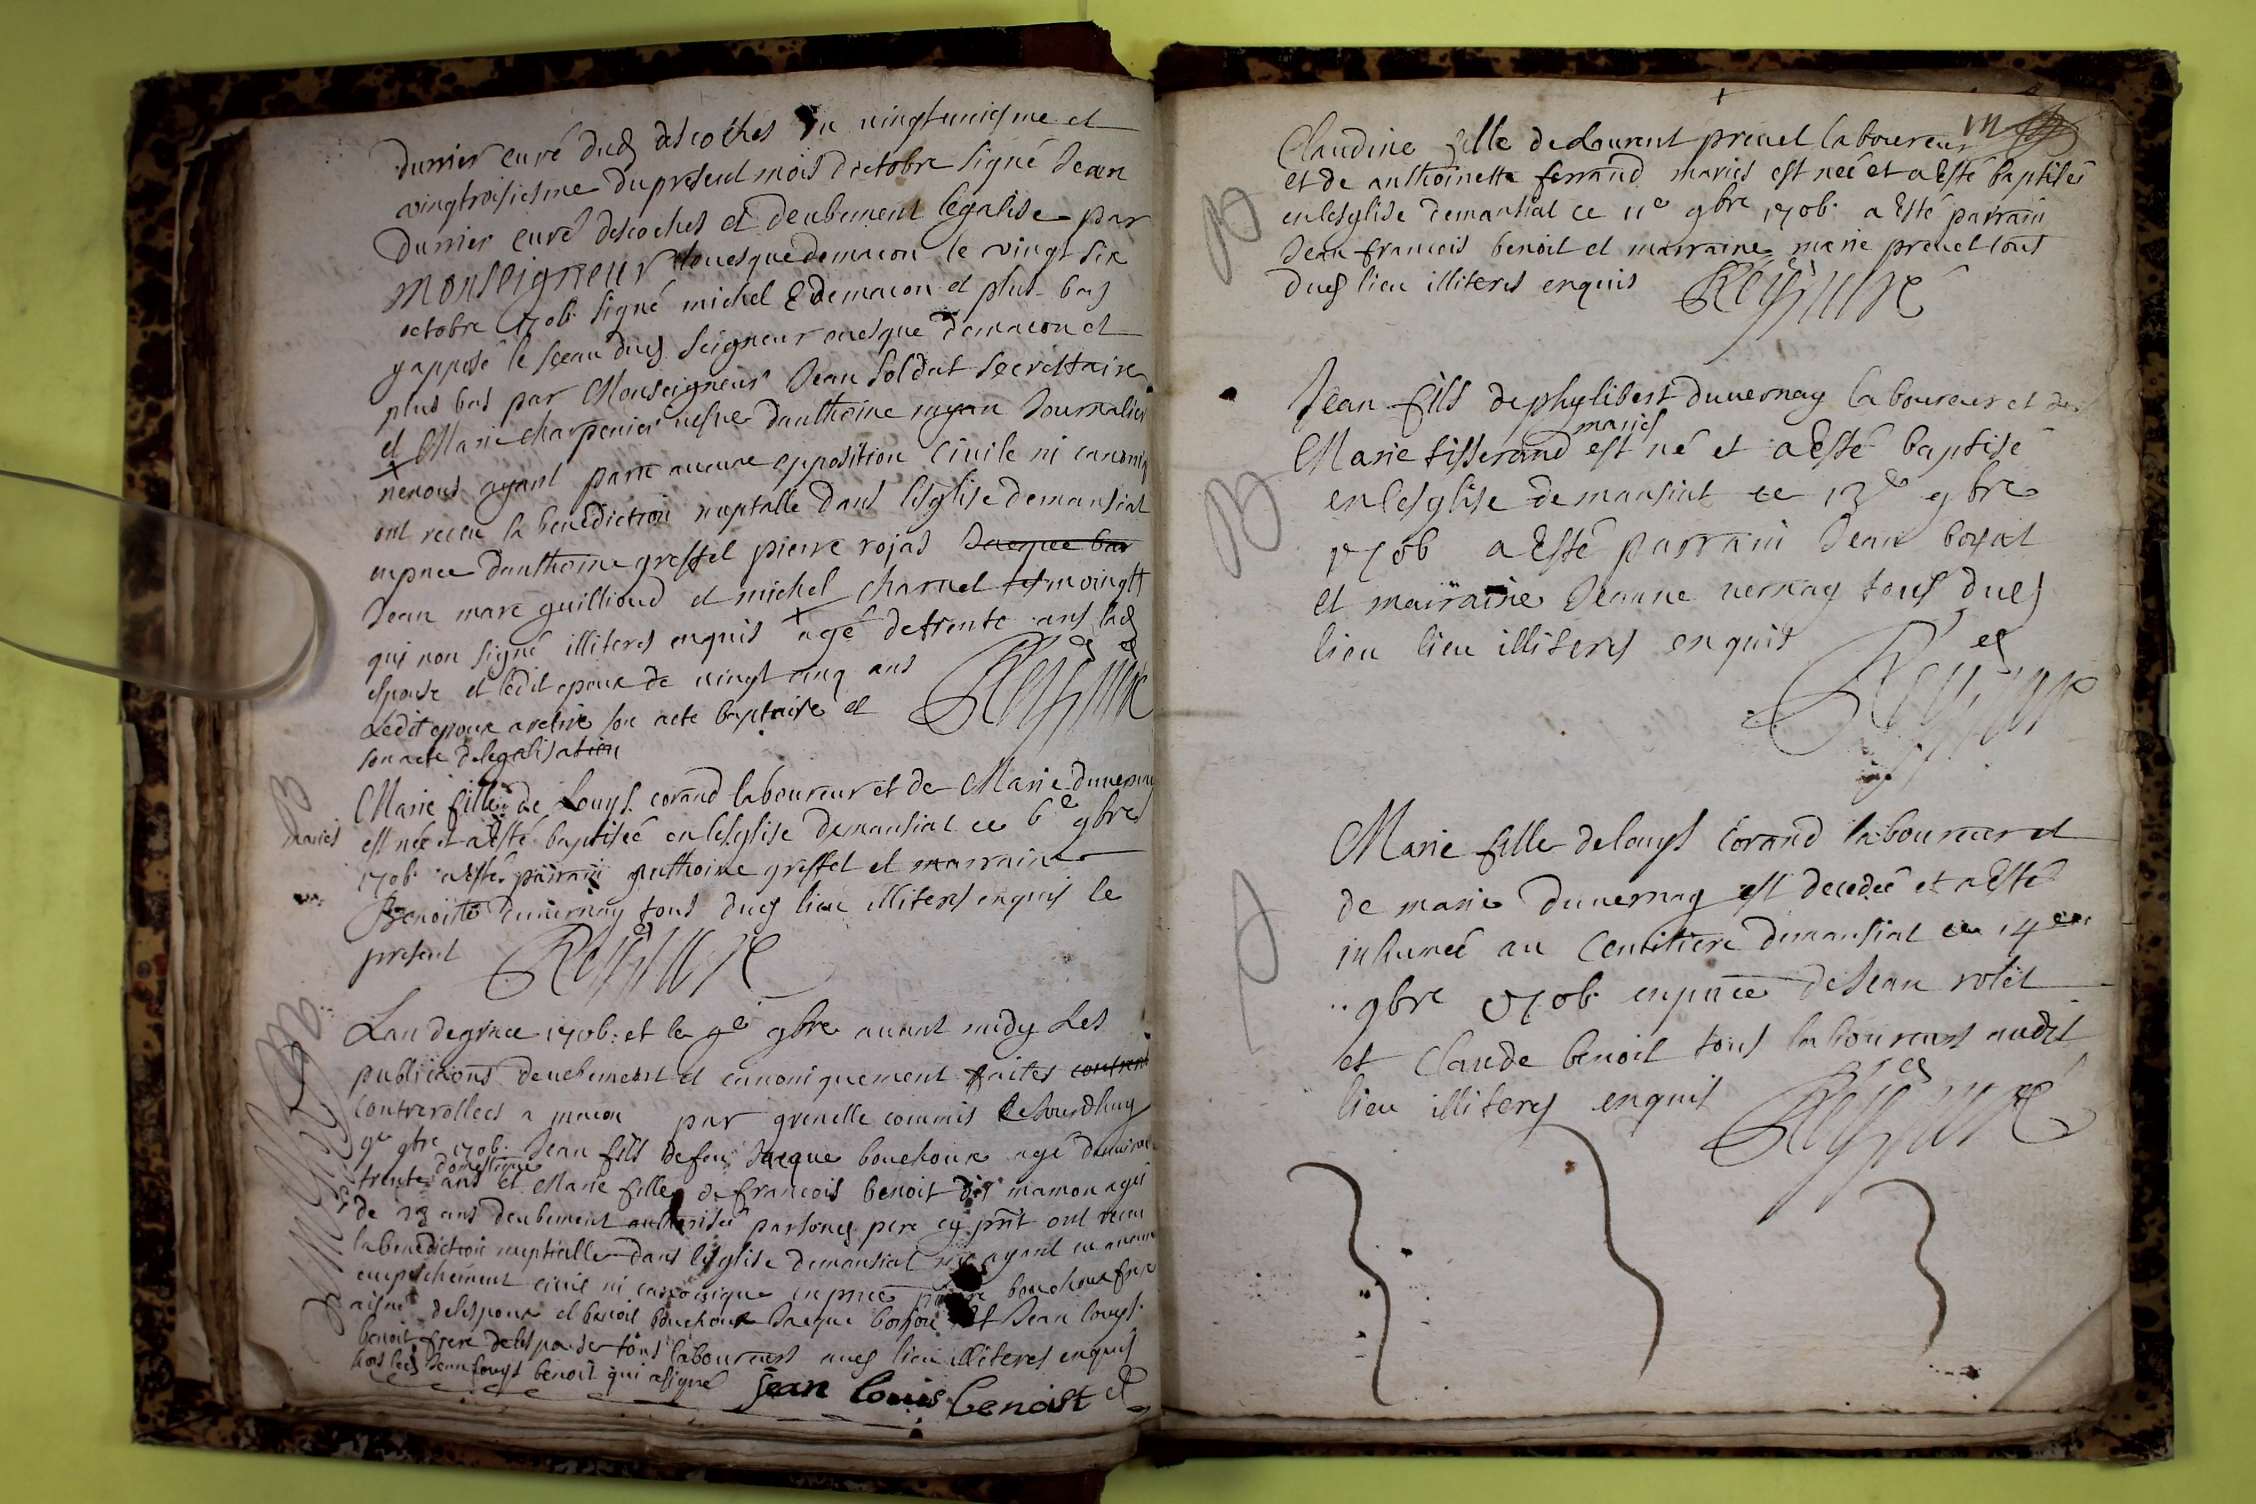 durrier curé dud descoches du vingtuniesme et
vingtroisiesme du present mois doctobre signé Jean
durrier curé descoches et deubement legalise par
monseigneur levesque de macon le vingt six
octobre 1706 signé michel E de macon et plus bas
y apposé le sceau dud seigneur evesque de macon et
plus bas par Monseigneur Jean Soldat secrettaire
et Marie charpenier vefve danthoine Journalier
ne nous ayant paru aucune opposition civile ni canoniq
ont receu la benediction nuptalle dans lesglise de mansiat
en pnce danthoine greffet pierre rojas Jacque
Jean marc guillioud et michel charvet tesmoingtt
qui non signé illiteres enquis agé de trente ans lad
espouse et ledit epoux de vingt cinq ans
Ledit epoux a retiré son acte baptaire et
son acte de legalisation
B
mariés
Marie fille de Louys corand laboureur et de Marie duvernay
est née et a Esté baptiséé en lesglise de mansiat ce 6e 9bre
1706 a esté parrain anthoine greffet et marraine
Benoitte duvernay tous dud lieu illiteres enquis le
present Rey curé
Lan de grace 1706 et le 9e 9bre avant midy Les
publications deuebement et canoniquement faites
controrollees a macon par grenelle commis ce Jourdhuy
9e 9bre 1706 Jean fils de feu Jacque bouchoux agé denviron
domestique
trente ans et Marie fille de francois benoit dit mamon agée
de 23 ans deubement authorisée par sond pere cy pnt ont receu
la benediction nuptialle dans lesglise de mansiat ny ayant eu aucun
empechement civil ni canonique en pnce pierre bouchoux frere
aisné delespoux et benoit bouchoux Jacque et Jean louys
benoit frere delespouse tous laboureurs aud lieu illiteres enquis
hors led Jean louys benoit qui a signé Jean louis benoist
Claudine fille de Laurent prevel laboureur
et de anthoinette ferrand mariés est née et a Esté baptisée
en lesglise de mansiat ce 11e 9bre 1706 a Esté parrain
Jean francois benoit et marraine marie prevel tous
dud lieu illiteres enquis Rey curé
B
Jean fils de phylibert duvernay laboureur et de
mariés
Marie tisserand est né et a Esté baptisé
en lesglise de mansiat ce 13e 9bre
1706 a Esté parrain Jean boyat
et mairaine Jeanne vernay tous dud
lieu lieu illiteres enquis
Rey curé
B
Marie fille de louys Corand laboureur et
de marie duvernay est decedée et a Esté
inhumée au Cemitiere de mansiat ce 14e
9bre 1706 en pnce de Jean rolet
et Claude benoit tous laboureurs audit
lieu illiteres enquis Rey curé